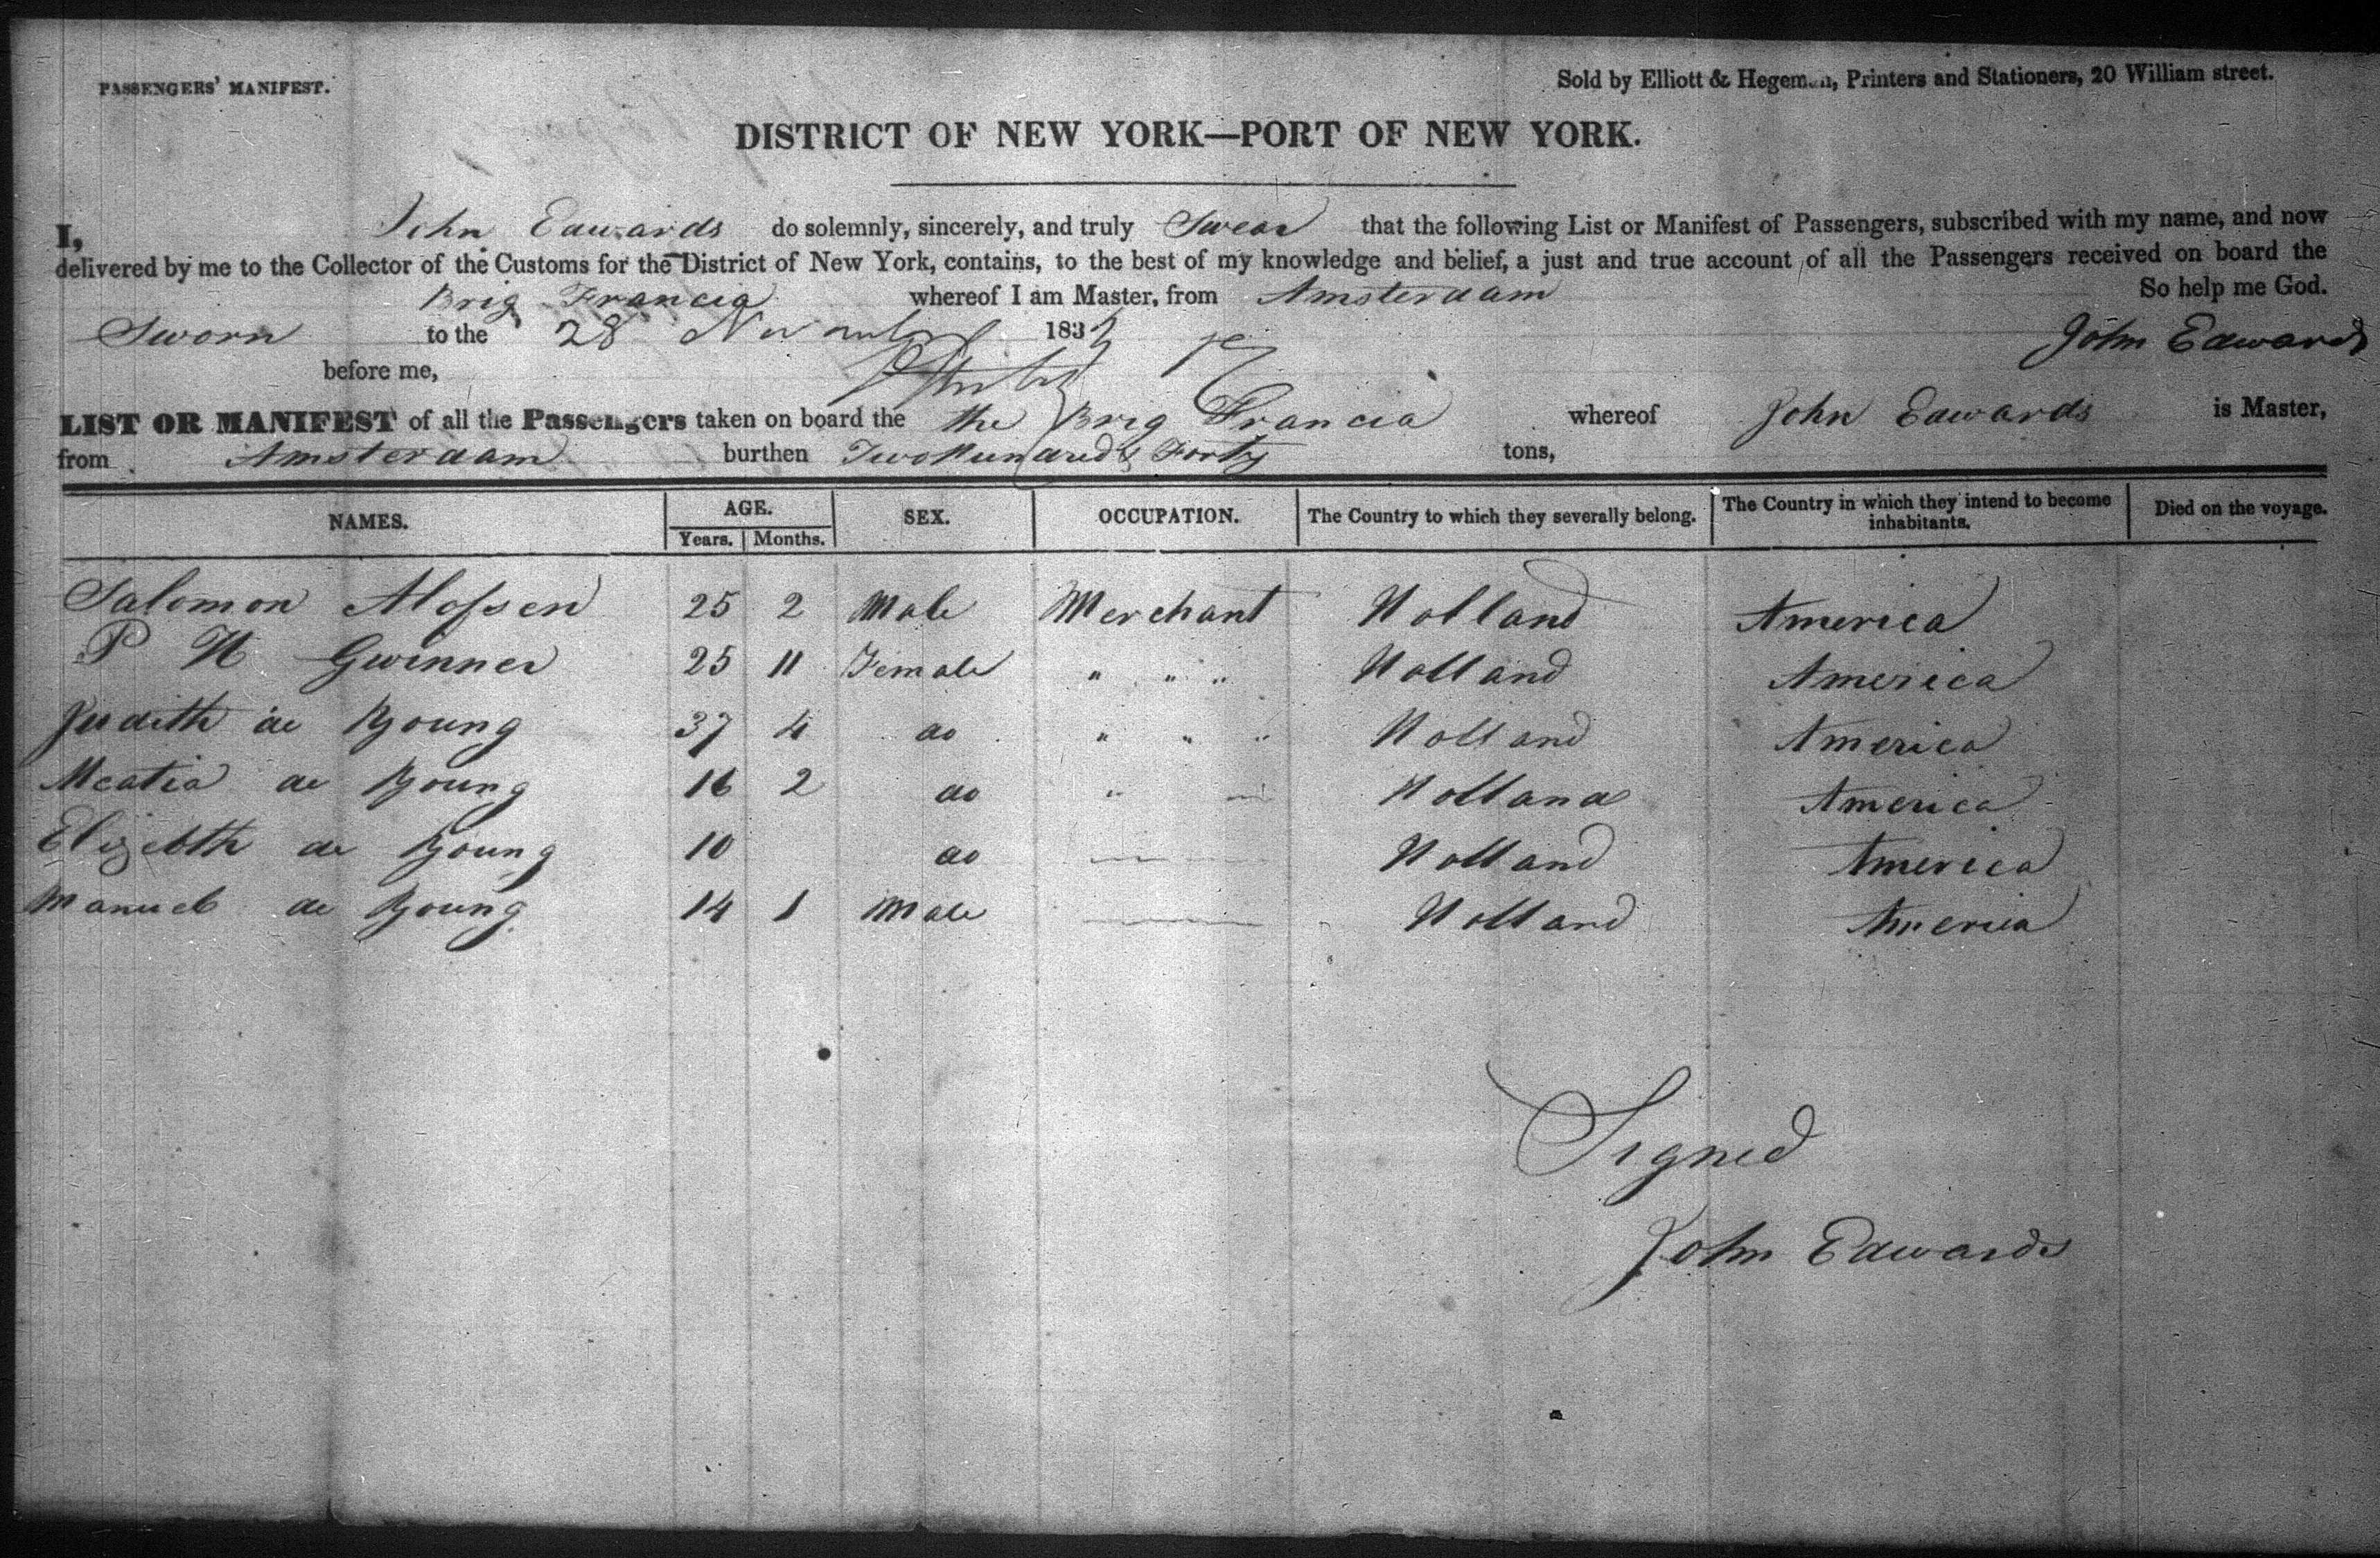 PASSENGERS' MANIFEST.
Sold by Elliott & Hegeman, Printers and Stationers, 20 William street.
DISTRICT OF NEW YORK—PORT OF NEW YORK.
I, John Edwards do solemnly, sincerely, and truly Swear that the following List or Manifest of Passengers, subscribed with my name, and now
delivered by me to the Collector of the Customs for the District of New York, contains, to the best of my knowledge and belief, a just and true account of all the Passengers received on board the
Brig Francia whereof I am Master, from Amsterdam So help me God.
Sworn to the 28 November 183 John Edwards
before me,
LIST OR MANIFEST of all the Passengers taken on board the the Brig Francia whereof John Edwards is Master,
from Amsterdam burthen Two Hundred & Forty tons,
NAMES. AGE. SEX. OCCUPATION. The Country to which they severally belong. The Country in which they intend to become inhabitants. Died on the voyage.
Years. Months.
Salomon 25 2 Male Merchant Holland America
P H Gwinner 25 11 Female " " " Holland America
Judith de Young 37 4 do " " " Holland America
de Young 16 2 do " — Holland America
Elizebth de Young 10 do — Holland America
Manuel de Young 14 1 Male — Holland America
Signed
John Edwards